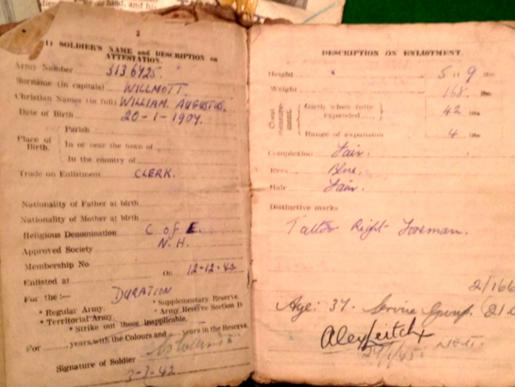 2
(1) SOLDIER'S NAME and DESCRIPTION on
ATTESTATION.
Army Number 3136725.
Surname (in capitals) WILLMOTT.
Christian Names (in full) WILLIAM AUGUSTUS.
Date of Birth 20-1-1907.
Parish
Place of Birth.
In or near the town of
In the county of
Trade on Enlistment CLERK.
Nationality of Father at birth
Nationality of Mother at birth
Religious Denomination C of E.
Approved Society N.H.
Membership No
Enlisted at On 12-12-42
For the :— DURATION
* Regular Army. * Supplementary Reserve.
* Territorial Army. * Army Reserve Section D
* Strike out those inapplicable.
For years, with the Colours and years in the Reserve.
Signature of Soldier
3-7-42
DESCRIPTION ON ENLISTMENT.
Height 5 9
Weight 168 lbs
Chest
Girth when fully expanded 42 ins
Range of expansion 4 ins
Complexion Fair.
Eyes Blue.
Hair Fair.
Distinctive marks
Tattoo Right Foreman.
2/166
Age: 37.
Alex Leitch